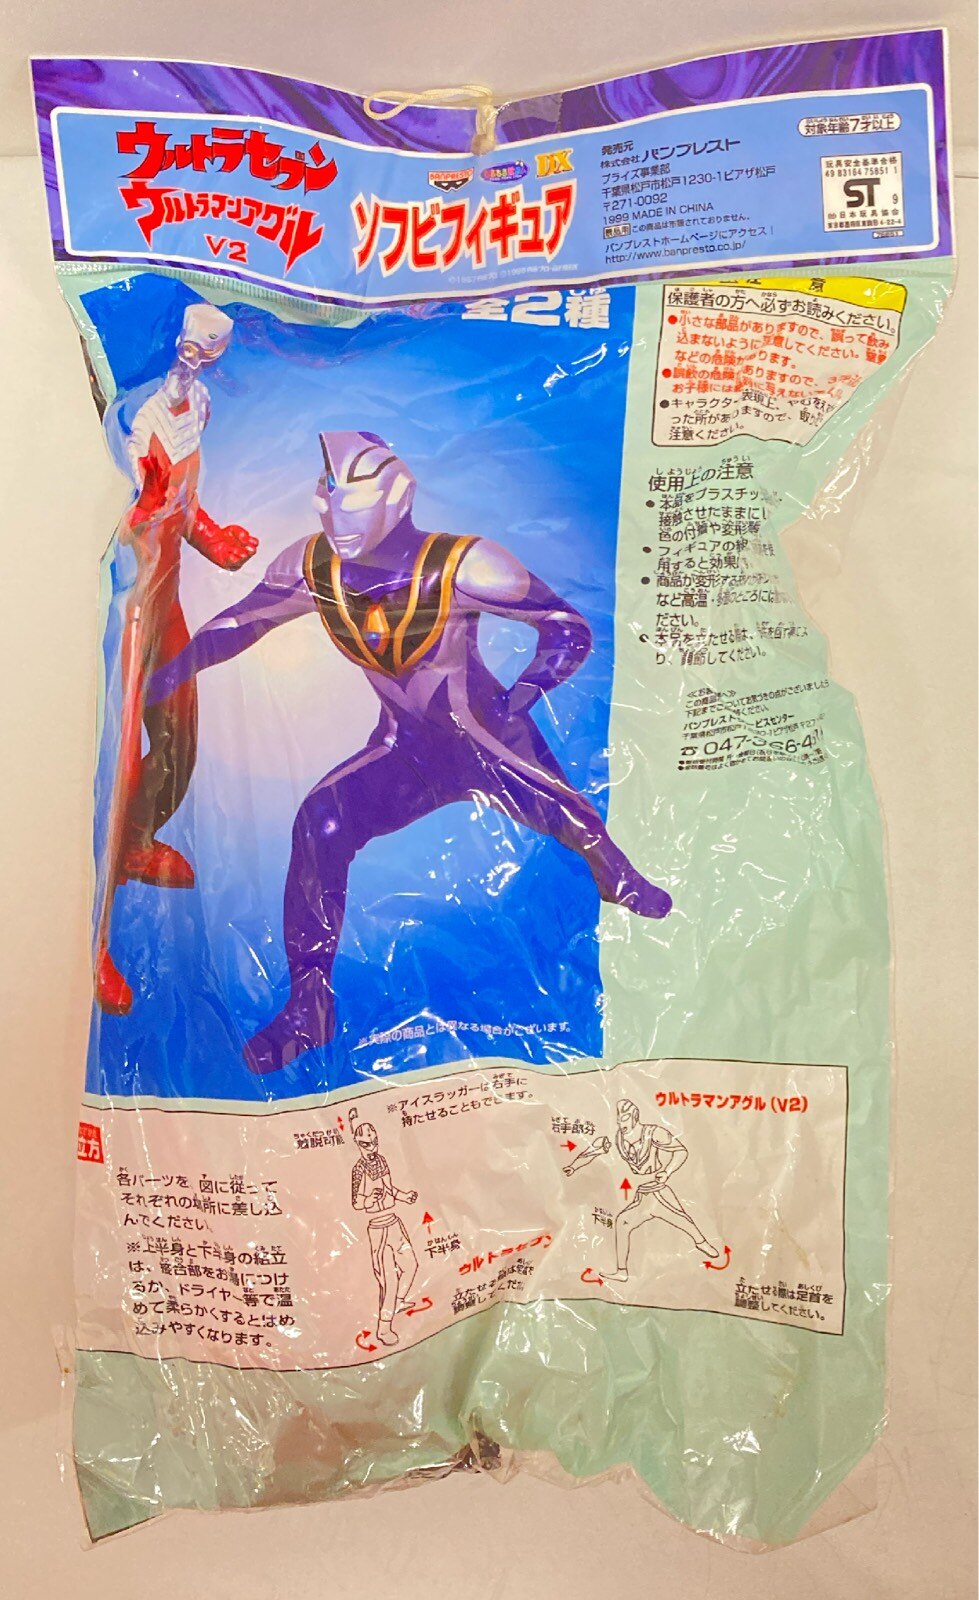 ウルトラセブン
ウルトラマンアグル
V2
BANPRESTO
DX
ソフビフィギュア
発売元
株式会社バンプレスト
プライズ事業部
千葉県松戸市松戸1230-1ピアザ松戸
〒271-0092
1999 MADE IN CHINA
景品用 この商品は市販されておりません。
バンプレストホームページにアクセス!
http://www.banpresto.co.jp/
対象年齢7才以上
玩具安全基準合格
49 83164 75851 1
ST
9
日本玩具協会
東京都墨田区東駒形4-22-4
75851
全2種
注意
保護者の方へ必ずお読みください。
●小さな部品がありますので、誤って飲み
込まないように注意してください。窒息
などの危険があります。
●誤飲の危険がありますので、
お子様には
●キャラクター表現上、やむをえ
った所がありますので、取り
注意ください。
使用上の注意
●本品をプラスチッ
接触させたままに
色の付着や変形等
●フィギュアの
用すると効果
●商品が変形する
など高温・
ださい。
●本品を立たせる際は、
り、調節してください。
この商品
下記までご
バンプレスト サービスセンター
千葉県松戸市松戸1230-1ピアザ松戸
☎047-366-4
※実際の商品とは異なる場合がございます。
立方
各パーツを、図に従って
それぞれの場所に差し込
んでください。
※上半身と下半身の組立
は、接合部をお湯につけ
るか、ドライヤー等で温
めて柔らかくするとはめ
込みやすくなります。
※アイスラッガーは右手に
持たせることもできます。
着脱可能
下半身
ウルトラセブン
立たせる際は足首
調整してくだ
ウルトラマンアグル(V2)
右手部分
下半身
立たせる際は足首を
調整してください。